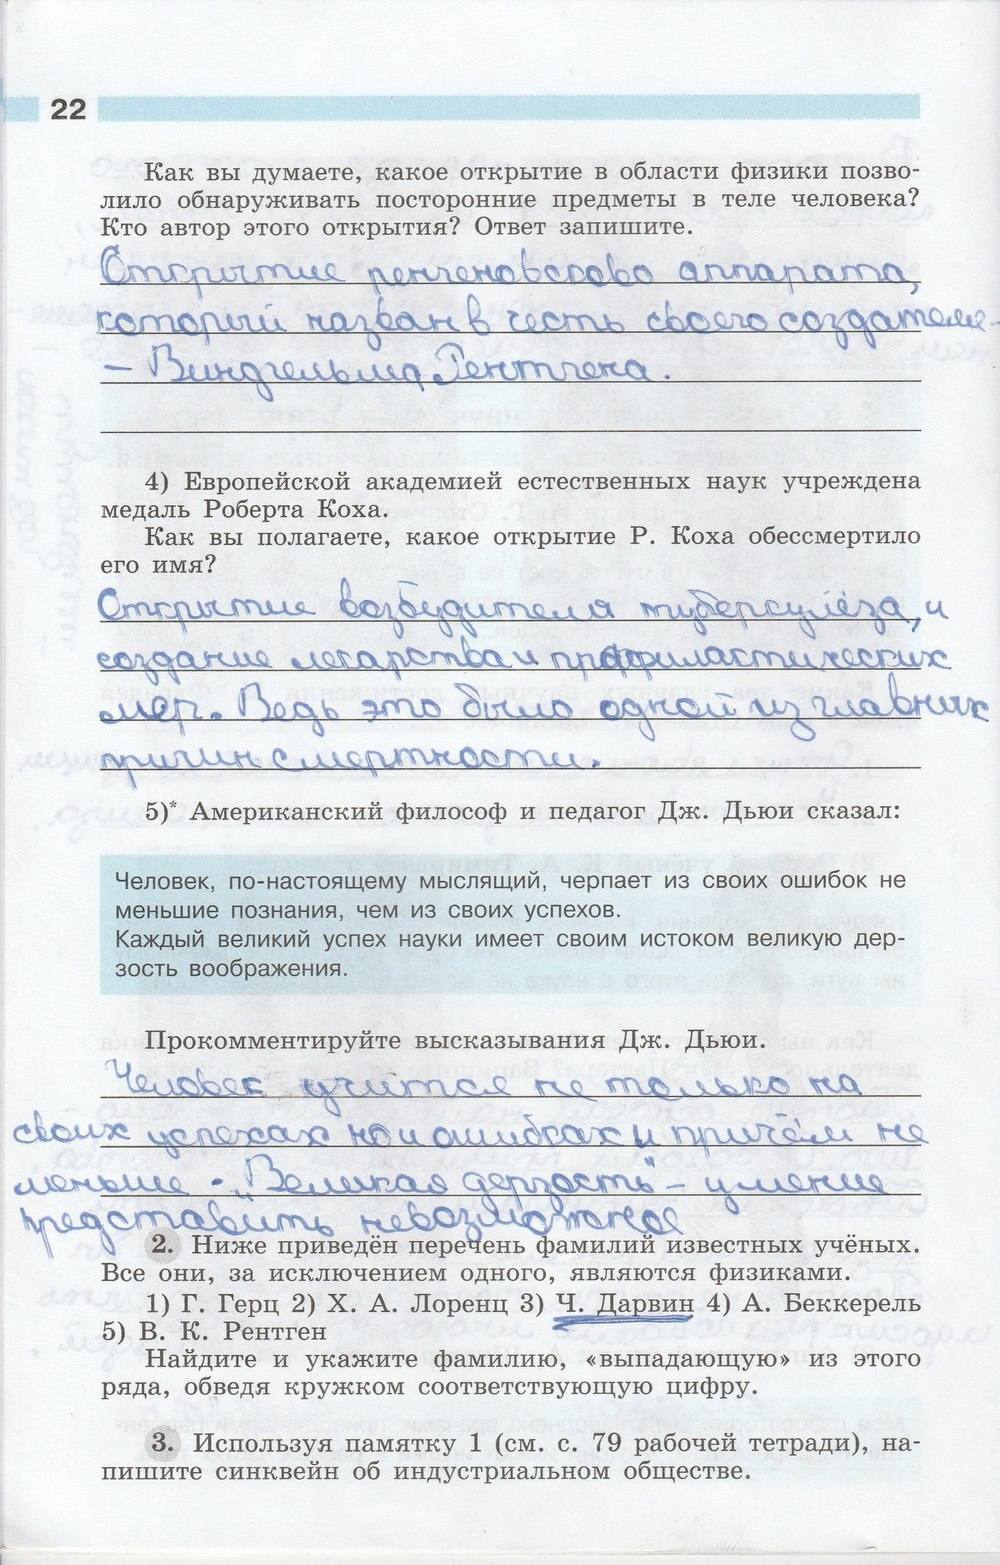 22
Как вы думаете, какое открытие в области физики позво-
лило обнаруживать посторонние предметы в теле человека?
Кто автор этого открытия? Ответ запишите.
Открытие ренгеновсково аппарата,
который назван в честь своего создателя -
- Виндгельма Рентгена.
4) Европейской академией естественных наук учреждена
медаль Роберта Коха.
Как вы полагаете, какое открытие Р. Коха обессмертило
его имя?
Открытие возбудителя туберкулёза, и
создание лекарства и профилактических
мер. Ведь это было одной из главных
причин смертности.
5)* Американский философ и педагог Дж. Дьюи сказал:
Человек, по-настоящему мыслящий, черпает из своих ошибок не
меньшие познания, чем из своих успехов.
Каждый великий успех науки имеет своим истоком великую дер-
зость воображения.
Прокомментируйте высказывания Дж. Дьюи.
Человек учится не только на
своих успехах но и ошибках и причём не
меньше. "Великая дерзость" - умение
представить невозможное
2. Ниже приведён перечень фамилий известных учёных.
Все они, за исключением одного, являются физиками.
1) Г. Герц 2) Х. А. Лоренц 3) Ч. Дарвин 4) А. Беккерель
5) В. К. Рентген
Найдите и укажите фамилию, «выпадающую» из этого
ряда, обведя кружком соответствующую цифру.
3. Используя памятку 1 (см. с. 79 рабочей тетради), на-
пишите синквейн об индустриальном обществе.